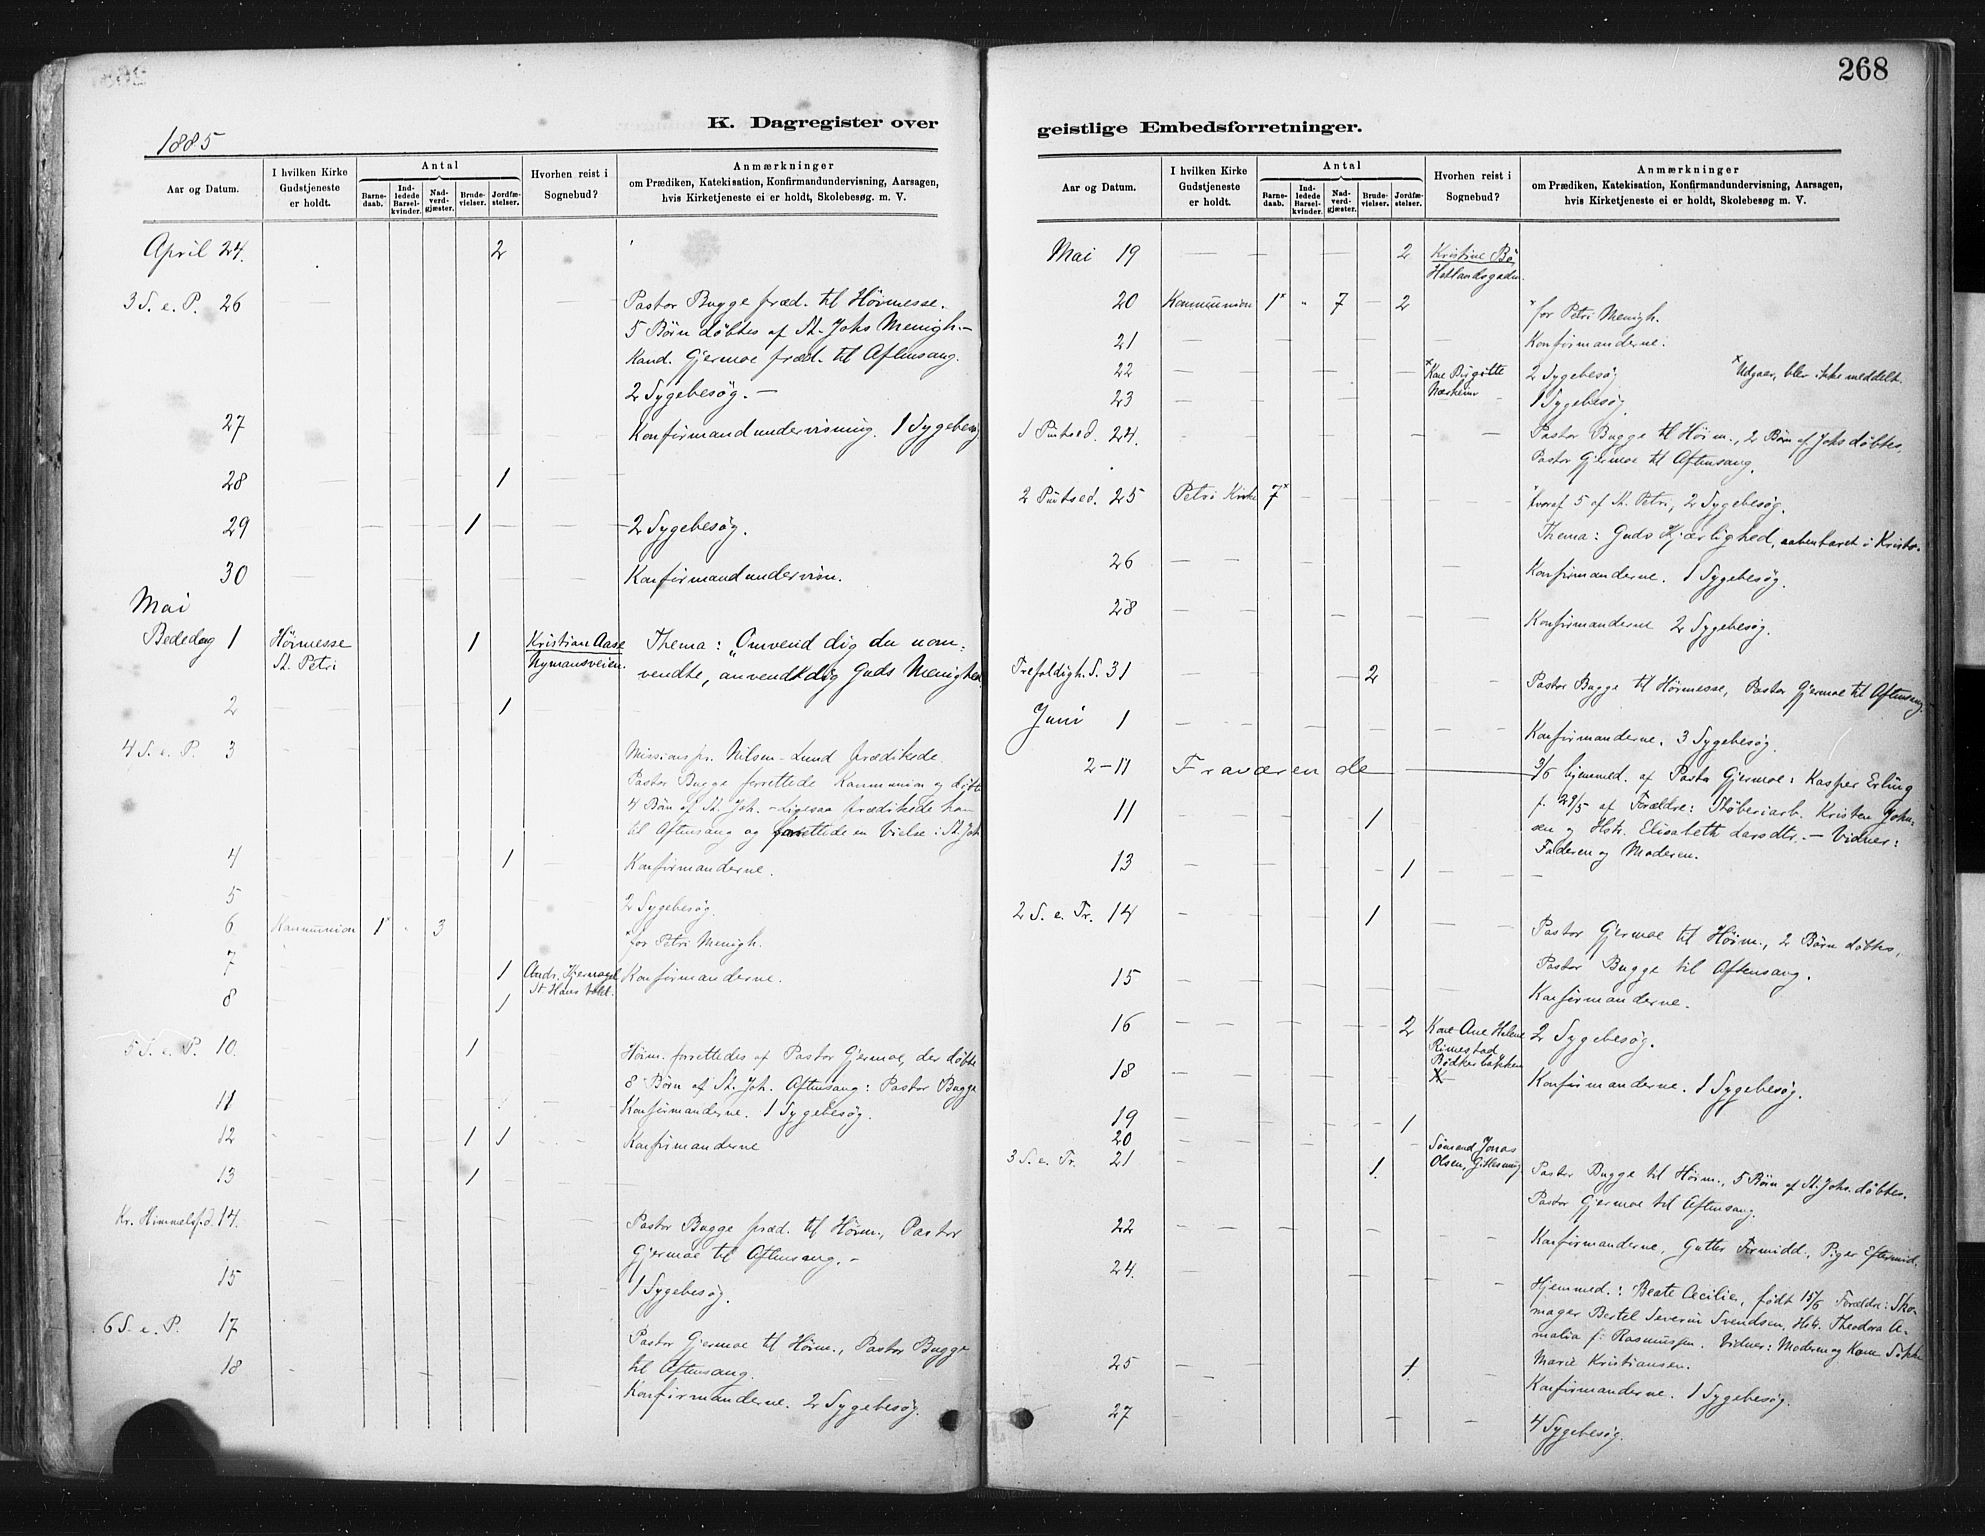 268
K. Dagregister over
1885
Aar og Datum.
I hvilken Kirke Gudstjeneste er holdt.
Antal
Barnedaab.
Indledede Barselkvinder.
Nadverdgjæster.
Brudevielser.
Jordfæstelser.
Hvorhen reist i Sognebud?
Anmærkninger
om Prædiken, Katekisation, Konfirmandundervisning, Aarsagen,
hvis Kirketjeneste ei er holdt, Skolebesøg. m. V.
April 24. 2
3 S. e. P. 26 Pastor Bugge præd. til Høimesse.
5 Børn døbtes af St. Johs Menigh. -
Kand. Gjermoe præd. til Aftensang.
2 Sygebesøg. -
27 Konfirmandundervisning. 1 Sygebesøg
28 1
29 1 2 Sygebesøg.
30 Konfirmandundervisn.
Mai
Bededag 1 Høimesse 1 Kristian Aase Thema: "Omvend dig du uom-
St. Petri Nymansveien. vendte, anvendt dig Guds Menighed
2 1
4 S. e. P. 3 Missionspr. Nilsen-Lund prædikede.
Pastor Bugge forrettede Kommunion og døbte
4 Børn af St. Joh. - Ligesaa prædikede han
til Aftensang og forrettede en Vielse i St. Joh
4 1 Konfirmanderne.
5 2 Sygebesøg.
6 Kommunion 1* " 3 * for Petri Menigh.
7 1 Konfirmanderne.
St. Hans
8 1
5 S. e. P. 10. 1 Høim. forrettedes af Pastor Gjermoe, der døbte
8 Børn af St. Joh. Aftensang: Pastor Bugge
11 Konfirmanderne. 1 Sygebesøg.
12 1 1 Konfirmanderne
13 1
Kr. Himmelsf.d. 14. Pastor Bugge præd. til Høim., Pastor
Gjermoe til Aftensang. -
15 1 Sygebesøg.
6 S. e. P. 17 Pastor Gjermoe til Høim., Pastor Bugge
til Aftensang.
18 Konfirmanderne. 2 Sygebesøg.
geistlige Embedsforretninger.
Aar og Datum.
I hvilken Kirke Gudstjeneste er holdt.
Antal
Barnedaab.
Indledede Barselkvinder.
Nadverdgjæster.
Brudevielser.
Jordfæstelser.
Hvorhen reist i Sognebud?
Anmærkninger
om Prædiken, Katekisation, Konfirmandundervisning, Aarsagen,
hvis Kirketjeneste ei er holdt, Skolebesøg m. V.
Mai 19 2 Kristine Bø
Hetlandsgaden.
20 Kommunion 1* " 7 - 2 * for Petri Menigh.
21 Konfirmanderne.
22 * Kone Birgitte 2 Sygebesøg * Udgaar, blev ikke meddelt.
23 1 Sygebesøg
1 Pintsed. 24. Pastor Bugge til Høim., 2 Børn af Johs døbtes,
Pastor Gjermoe til Aftensang.
2 Pintsed. 25 Petri Kirke 7* * hvoraf 5 af St. Petri, 2 Sygebesøg.
Thema: Guds Kjærlighed, aabenbaret i Kristo.
26 Konfirmanderne. 1 Sygebesøg.
28 Konfirmanderne 2 Sygebesøg.
Trefoldigh. S. 31 2 Pastor Bugge til Høimesse, Pastor Gjermoe til Aftensang.
Juni 1 Konfirmanderne. 3 Sygebesøg.
2-11 Fraværende 9/6 hjemmed. af Pastor Gjermoe: Kasper Erling
11 1 f. 29/5 af Forældre: Støberiarb. Kristen John-
sen og Hstr. Elisabeth Larsdtr. - Vidner:
Faderen og Moderen.
13 1
2 S. e. Tr. 14 1 Pastor Gjermoe til Høim., 2 Børn døbtes,
Pastor Bugge til Aftensang.
15 Konfirmanderne.
16 2 Kone Ane Helene 2 Sygebesøg.
Rimestad
Bødkerbakken
18 Konfirmanderne. 1 Sygebesøg.
19 1
20 Sømand Jonas
3 S. e. Tr. 21 1. Olsen, Pastor Bugge til Høim., 5 Børn af St. Johs. døbtes.
Pastor Gjermoe til Aftensang.
22 Konfirmanderne, Gutter Formidd., Piger Eftermid.
24. Hjemmed.: Beate Cecilie, født 15/6 Forældre: Sko-
mager Bertel Severin Svendsen, Hstr. Theodora A-
malia f. Rasmussen. Vidner: Moderen og Kone
Marie Kristiansen.
25 1. Konfirmanderne. 1 Sygebesøg.
27 4 Sygebesøg.